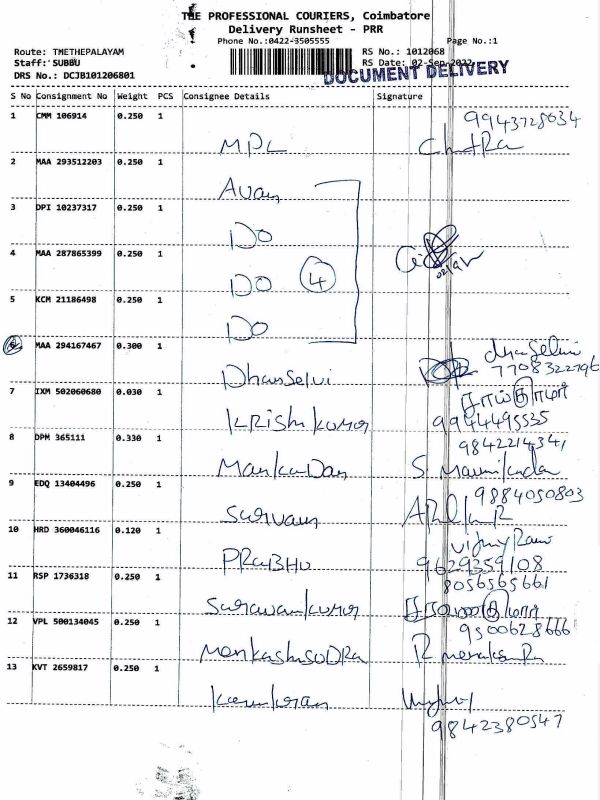 THE PROFESSIONAL COURIERS, Coimbatore
Delivery Runsheet - PRR
Phone No.:0422-3505555 Page No.:1
Route: TMETHEPALAYAM RS No.: 1012068
Staff: SUBBU RS Date: 02-Sep-2022
DRS No.: DCJB101206801 DOCUMENT DELIVERY
S No Consignment No Weight PCS Consignee Details Signature
1 CMM 106914 0.250 1 9943728634
MPL Chitra
2 MAA 293512203 0.250 1
3 DPI 10237317 0.250 1
DO
4 MAA 287865399 0.250 1
DO 4
5 KCM 21186498 0.250 1
DO
6 MAA 294167467 0.300 1 dhanSelvi
7708322796
DhanSelvi
7 IXM 502060680 0.030 1
KRISHnkumar 9944495535
8 DPM 365111 0.330 1 9842214341
ManikanDan S. Manikandan
9 EDQ 13404496 0.250 1 9884050803
Saravan
10 HRD 360046116 0.120 1
PRABHU 9629359108
11 RSP 1736318 0.250 1 8056565661
Saravanakumar சரவணகுமார்
12 VPL 500134045 0.250 1 9500628666
13 KVT 2659817 0.250 1
9842380547